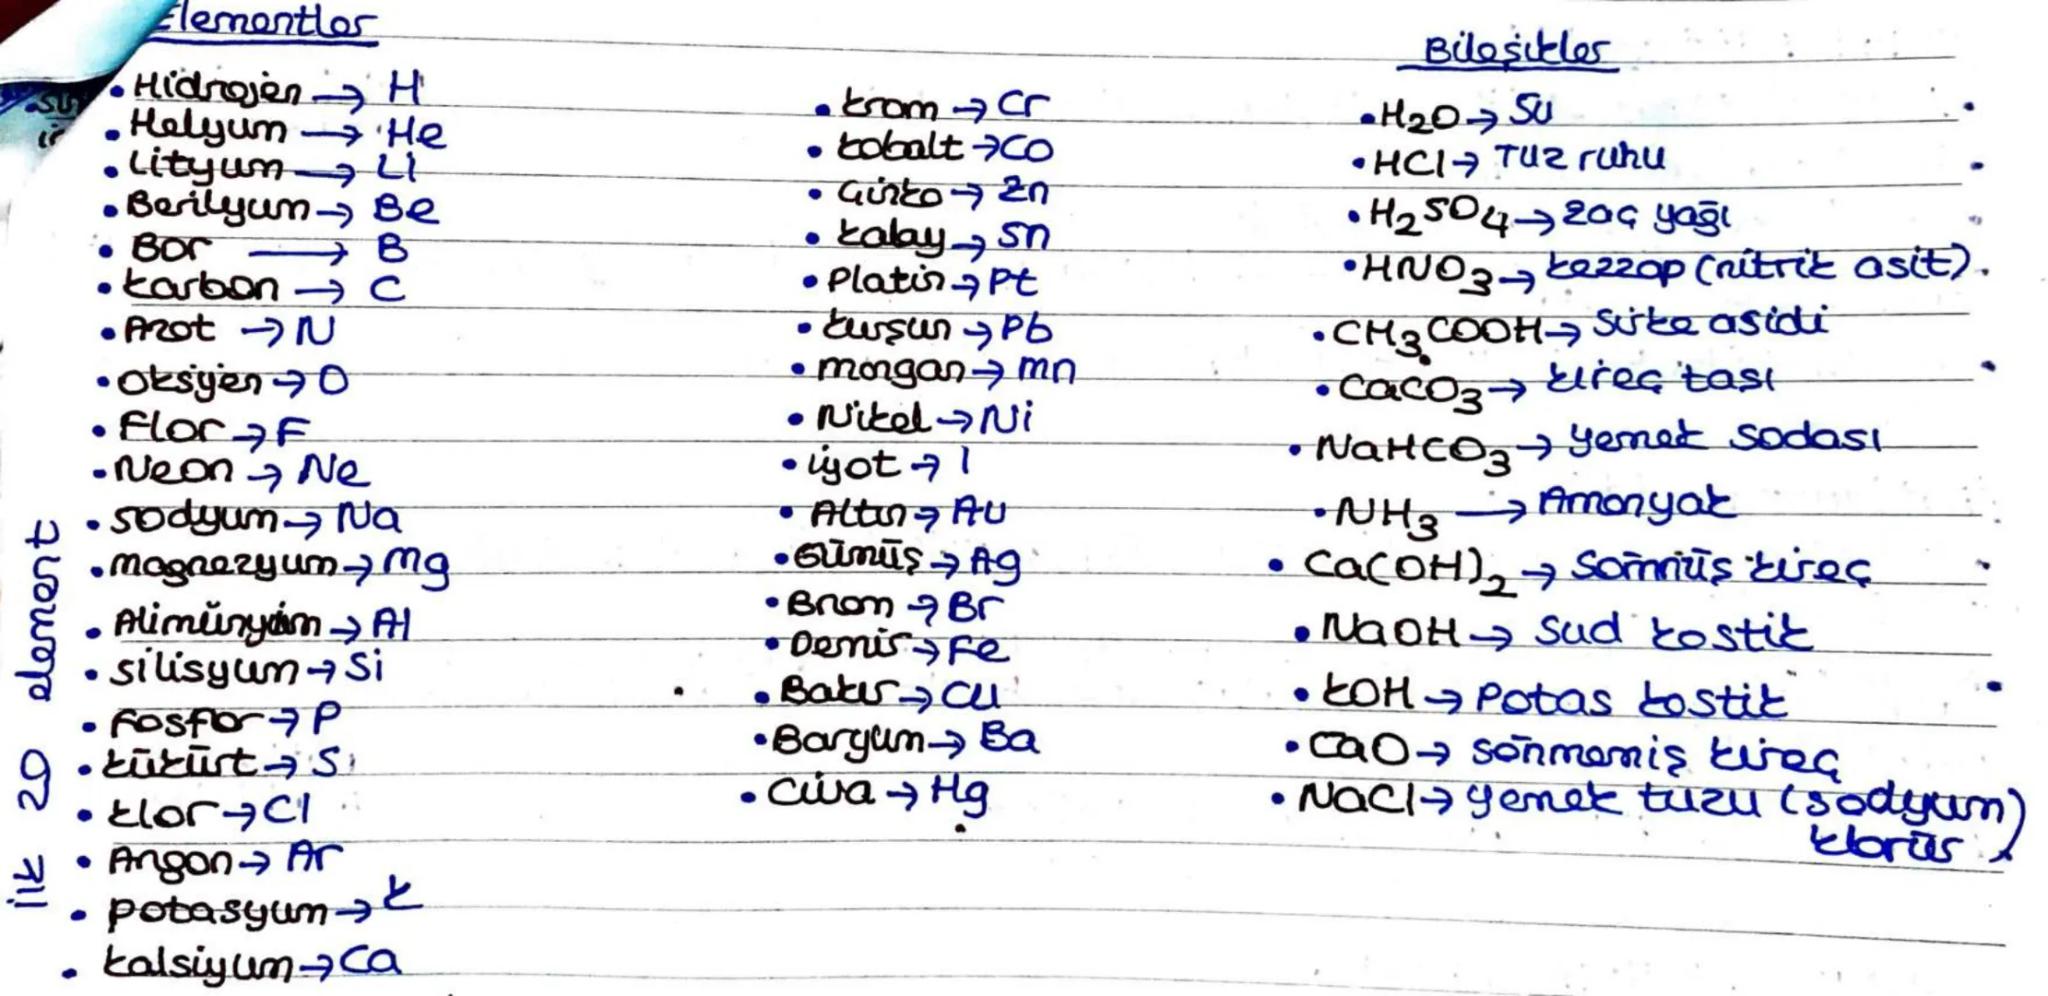 Elementler
• Hidrojen → H
• Helyum → He
• Lityum → Li
• Berilyum → Be
• Bor → B
• karbon → C
• Azot → N
• Oksijen → O
• Flor → F
• Neon → Ne
• sodyum → Na
• magnezyum → mg
• Alimünyüm → Al
• silisyum → Si
• Fosfor → P
• kükürt → S
• klor → Cl
• Argon → Ar
• potasyum → k
• kalsiyum → Ca
ilk 20 element
• krom → Cr
• kobalt → Co
• Çinko → Zn
• kalay → Sn
• Platin → Pt
• kurşun → Pb
• mangan → mn
• Nikel → Ni
• iyot → I
• Altın → Au
• Gümüş → Ag
• Brom → Br
• Demir → Fe
• Bakır → Cu
• Baryum → Ba
• Civa → Hg
Bileşikler
• H2O → Su
• HCl → Tuz ruhu
• H2SO4 → Zaç yağı
• HNO3 → kezzap (nitrik asit).
• CH3COOH → Sirke asidi
• CaCO3 → kireç taşı
• NaHCO3 → yemek sodası
• NH3 → Amonyak
• Ca(OH)2 → Sönmüş kireç
• NaOH → Sud kostik
• kOH → Potas kostik
• CaO → sönmemiş kireç
• NaCl → yemek tuzu (sodyum)
klorür